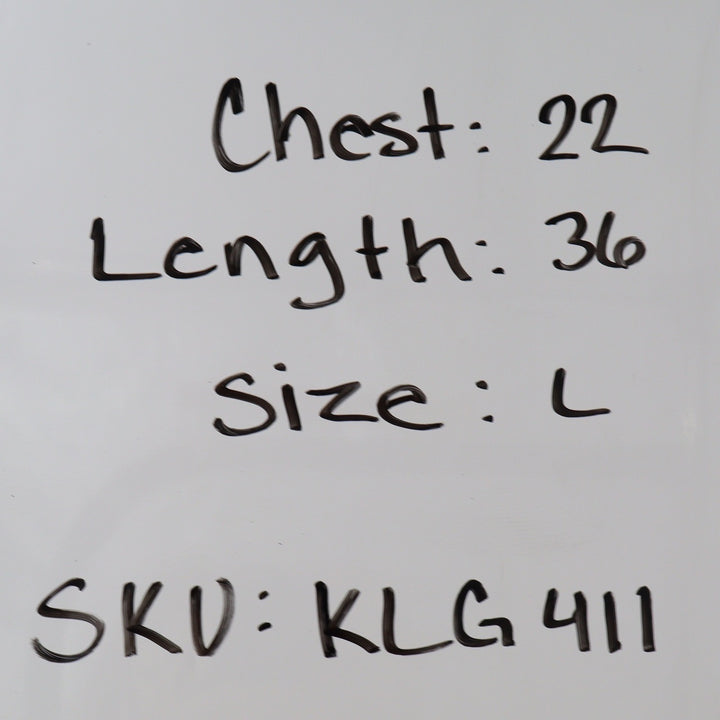 Chest: 22
Length: 36
Size: L
SKU: KLG411